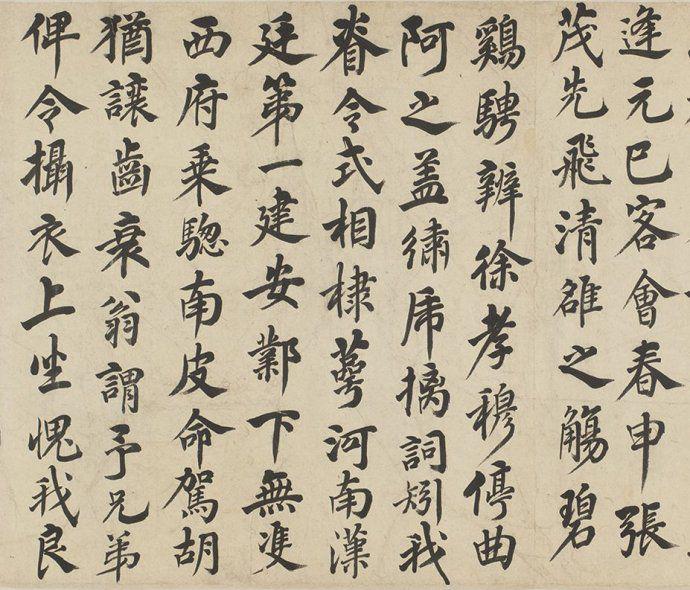 逢元巳客會春申張
茂先飛清雒之觴碧
鷄騁辨徐孝穆停曲
阿之蓋繡虎摛詞矧我
眷令式相棣萼河南漢
廷第一建安鄴下無雙
西府乘驄南皮命駕胡
猶讓齒衰翁謂予兄弟
俾令攝衣上坐愧我良